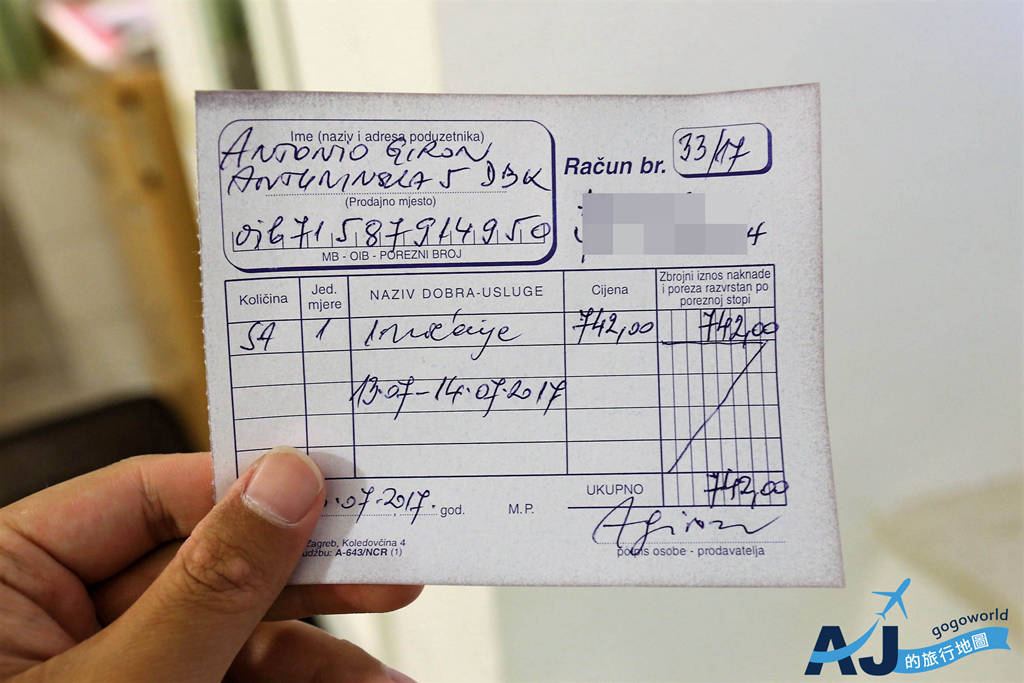 Ime (naziv i adresa poduzetnika)
ANTONIO GIRON
ANTUNINSKA 5 DBK
(Prodajno mjesto)
oib 71587914950
MB - OIB - POREZNI BROJ
Račun br. 33/17
4
Količina
Jed. mjere
NAZIV DOBRA-USLUGE
Cijena
Zbrojni iznos naknade
i poreza razvrstan po
poreznoj stopi
SA 1 742,00 742,00
13.07-14.07.2017
UKUPNO 742,00
.07.2017. god.
M.P.
AGiron
potpis osobe - prodavatelja
Zagreb, Koledovčina 4
A-643/NCR (1)
AJ
gogoworld
的旅行地圖